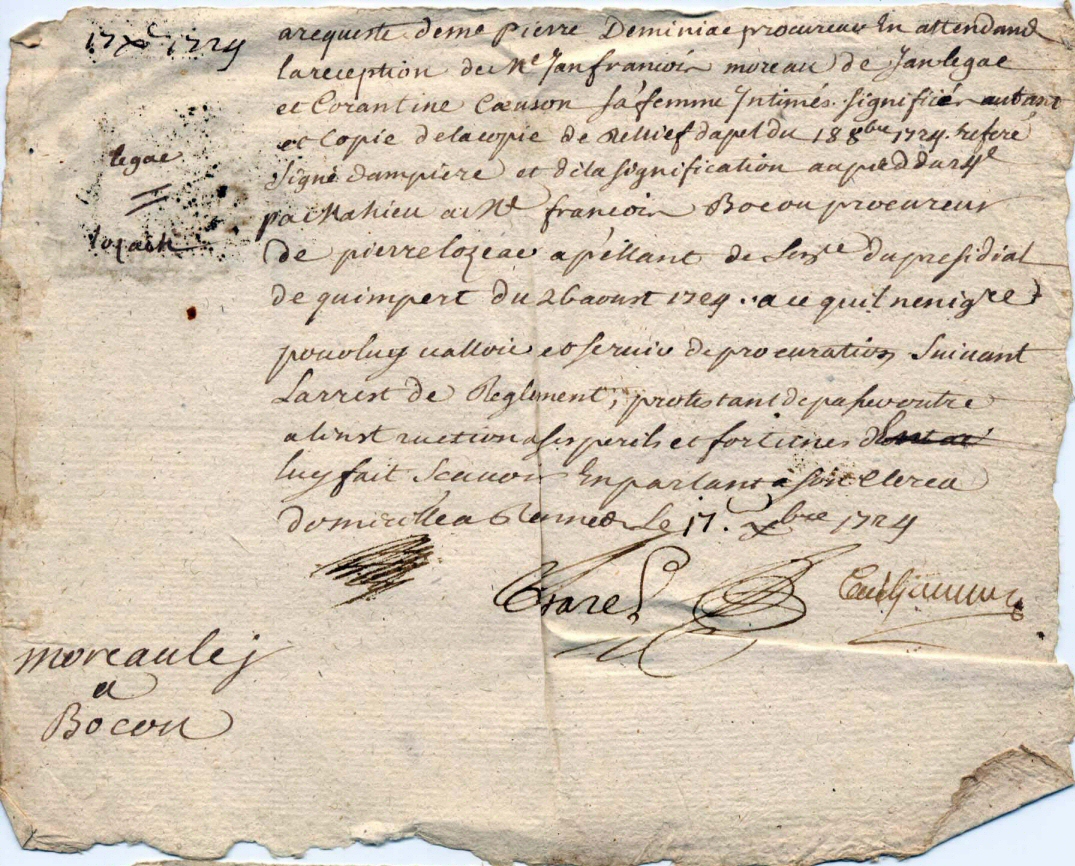 17 xbre 1724
legac
lozach
a requeste de me pierre Deminiac procureur En attendand
la reception de Me Jan francois moreau de Jan legac
et Corantine Caenson sa femme Jntimés. signifié autant
et Copie de la copie de Rellief dapel du 18 8bre 1724. referé
signé dampiere et de la signification au pied du 24e
par Mahieu a Me francois Bocou procureur
de pierre lozeac apellant de Sence du presidial
de quimpert du 26 aoust 1724. a ce quil nen igre
pour luy valloir et servir de procuration suivant
Larrest de Reglement, protestant de passer outre
a linstruction a ses perils et fortunes
luy fait scauoir En parlant a son Clerc a
domicille a Rennes Le 17. xbre 1724
moreau lej
a
Bocou